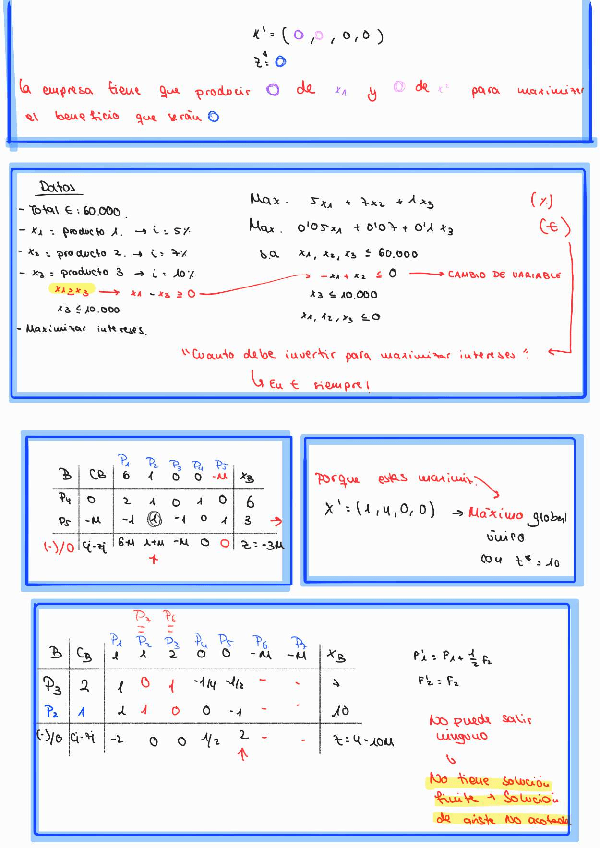 x' = ( 0 , 0 , 0, 0 )
z* = 0
La empresa tiene que producir 0 de x1 y 0 de x' para maximizar
el beneficio que serán 0
Datos
- Total €: 60.000.
- x1 = producto 1. → i = 5%
- x2 = producto 2. → i = 7%
- x3 = producto 3 → i = 10%
x1 ≥ x3 → x1 - x3 ≥ 0
x3 ≤ 10.000
- Maximizar intereses.
Max. 5x1 + 7x2 + 1x3 (%)
Max. 0'05x1 + 0'07 + 0'1 x3 (€)
s.a x1, x2, x3 ≤ 60.000
> -x1 + x2 ≤ 0 → CAMBIO DE VARIABLE
x3 ≤ 10.000
x1, x2, x3 ≤ 0
"Cuanto debe invertir para maximizar intereses".
↳ En € siempre!
P1 P2 P3 P4 P5
B CB 6 1 0 0 -M XB
P4 0 2 1 0 1 0 6
P5 -M -1 1 -1 0 1 3 →
(-)/0 Cj-zj 6+M 1+M -M 0 0 z = -3M
Porque estás maximiz.
X' = (1, 4, 0, 0) → Máximo global
único
con z* = 10
P2 P6
P1 P2 P3 P4 P5 P6 P7
B CB 1 1 2 0 0 -M -M XB
P3 2 1 0 1 -1/4 -1/2 - -
P2 1 1 1 0 0 -1 - - 10
(-)/0 Cj-zj -2 0 0 1/2 2 - - z = 4-10M
F'1 = F1 + 1/2 F2
F'2 = F2
No puede salir
ninguno
↳
No tiene solución
finita + Solución
de arista No acotada